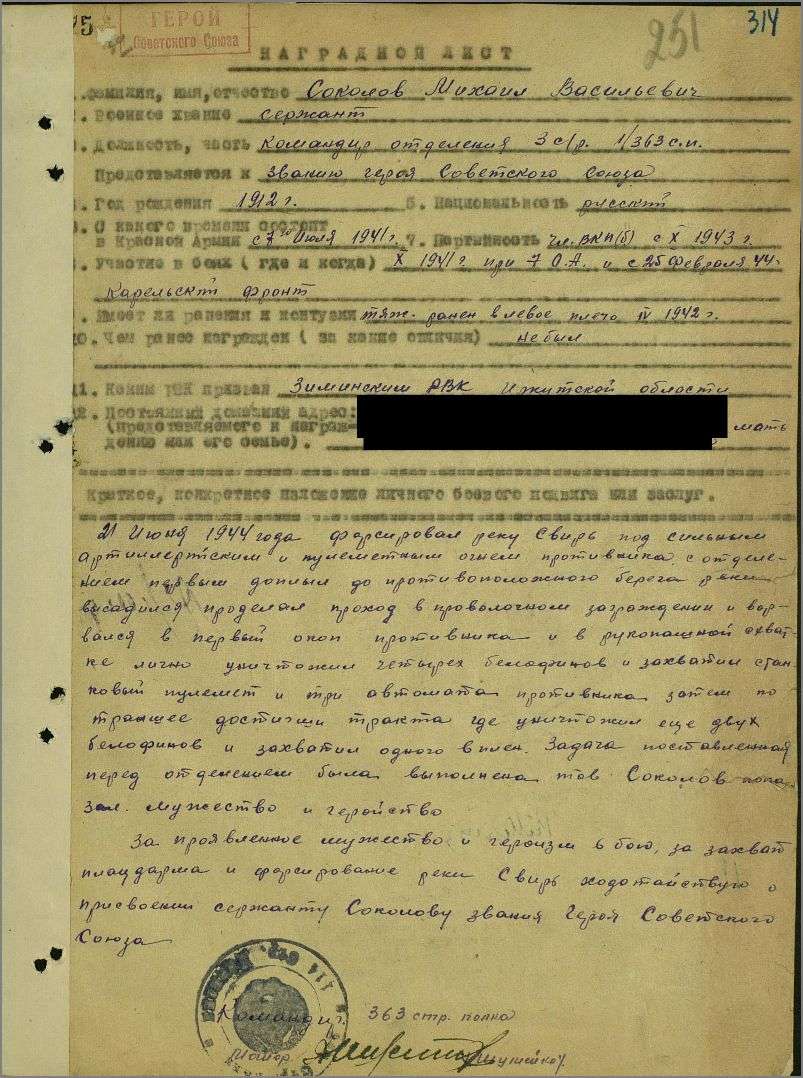 75
ГЕРОЙ
Советского Союза
251
314
НАГРАДНОЙ ЛИСТ
.Фамилия, имя, отчество Соколов Михаил Васильевич
. Военное звание сержант
. Должность, часть командир отделения 3 с/р. 1/363 с.п.
Представляется к званию героя Советского Союза
. Год рождения 1912 г. 5. Национальность русский
. С какого времени состоит
в Красной Армии с 7го Июля 1941г. 7. Партийность чл. ВКП(б) с X 1943 г.
. Участие в боях ( где и когда) X 1941г при 7 О.А. и с 25 Февраля 44г
Карельский фронт
. Имеет ли ранения и контузии тяж. ранен в левое плечо IV 1942 г.
10. Чем ранее награжден ( за какие отличия) не был
11. Каким РВК призван Зиминским РВК Иркутской области
12. Постоянный домашний адрес:
(представляемого к награж- мать
дению или его семье).
Краткое, конкретное изложение личного боевого подвига или заслуг.
21 Июня 1944 года форсировал реку Свирь под сильным
артиллерийским и пулеметным огнем противника, с отделе-
нием первым доплыл до противоположного берега реки
высадился проделал проход в проволочном заграждении и вор-
вался в первый окоп противника и в рукопашной схват-
ке лично уничтожил четырех белофинов и захватил стан-
ковый пулемет и три автомата противника затем по
траншее достигши тракта где уничтожил еще двух
белофинов и захватил одного в плен. Задача поставленная
перед отделением была выполнена тов Соколов пока-
зал. мужество и геройство
За проявленное мужество и героизм в бою, за захват
плацдарма и форсирование реки Свирь ходотайствую о
присвоении сержанту Соколову звания Героя Советского
Союза
Командир 363 стр. полка
Майор